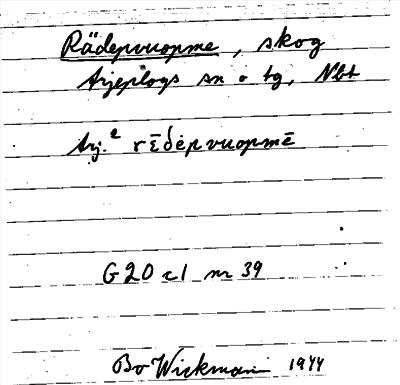 Rädepvuopme, skog
Arjeplogs sn o tg, Nbt
Arj.² rēδėpvuopmē
G20 c1 nr 39
Bo Wickman 1944